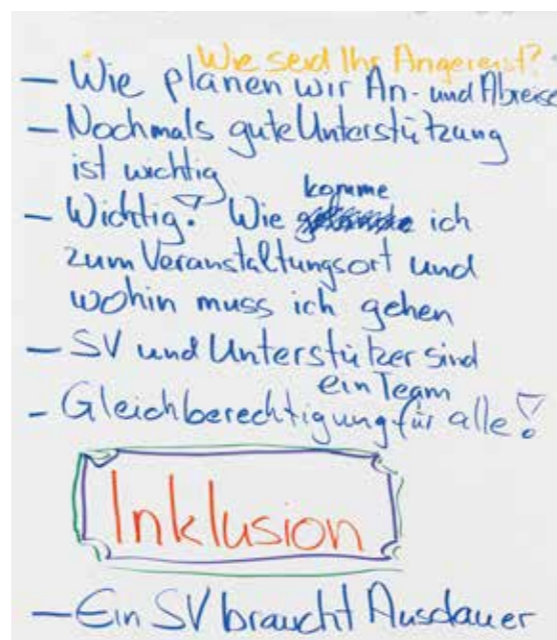 Wie seid Ihr Angereist?
– Wie planen wir An- und Abreise
– Nochmals gute Unterstützung
ist wichtig
– Wichtig! Wie komme ich
zum Veranstaltungsort und
wohin muss ich gehen
– SV und Unterstützer sind
ein Team
– Gleichberechtigung für alle!
Inklusion
– Ein SV braucht Ausdauer